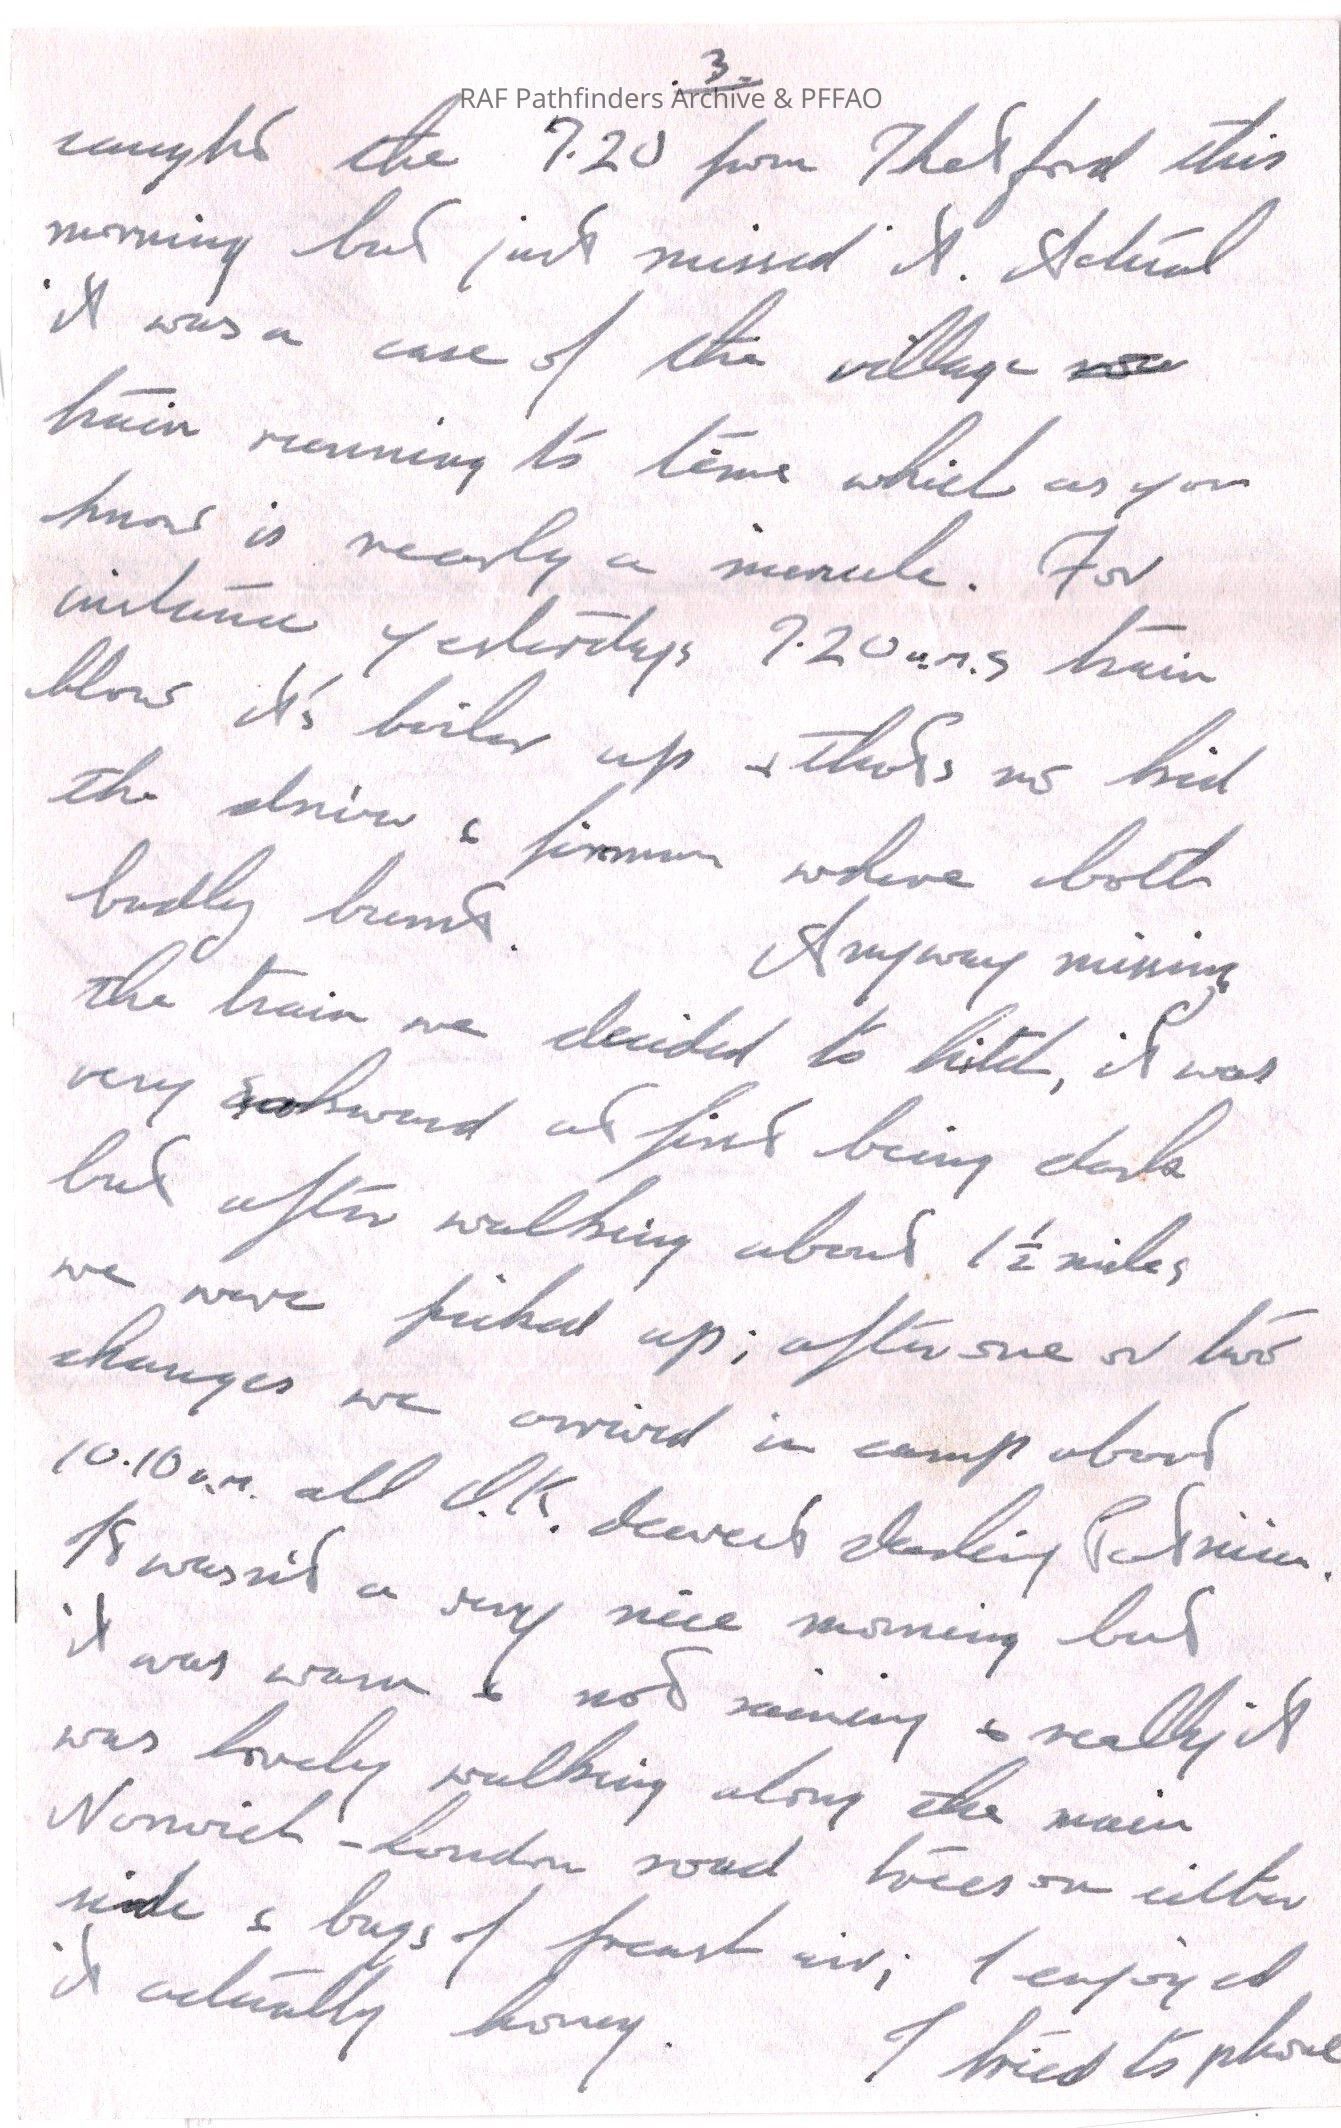 3.
RAF Pathfinders Archive & PFFAO
caught the 7.20 from Thetford this
morning but just missed it. Actual
it was a case of the village
train running to time which as you
know is nearly a miracle. For
instance yesterdays 7.20 a.m.s train
blow it's boiler up & thats no kid
the driver & fireman where both
badly burnt. Anyway missing
the train we decided to hitch, it was
very awkward at first being dark
but after walking about 1½ miles
we were picked up; after one or two
changes we arrived in camp about
10.10 a.m. all O.K. dearest darling
It wasn't a very nice morning but
it was warm & not raining & really it
was lovely walking along the main
Norwich - London road trees on either
side & bags of air; I enjoyed
it actually honey. I tried to phone